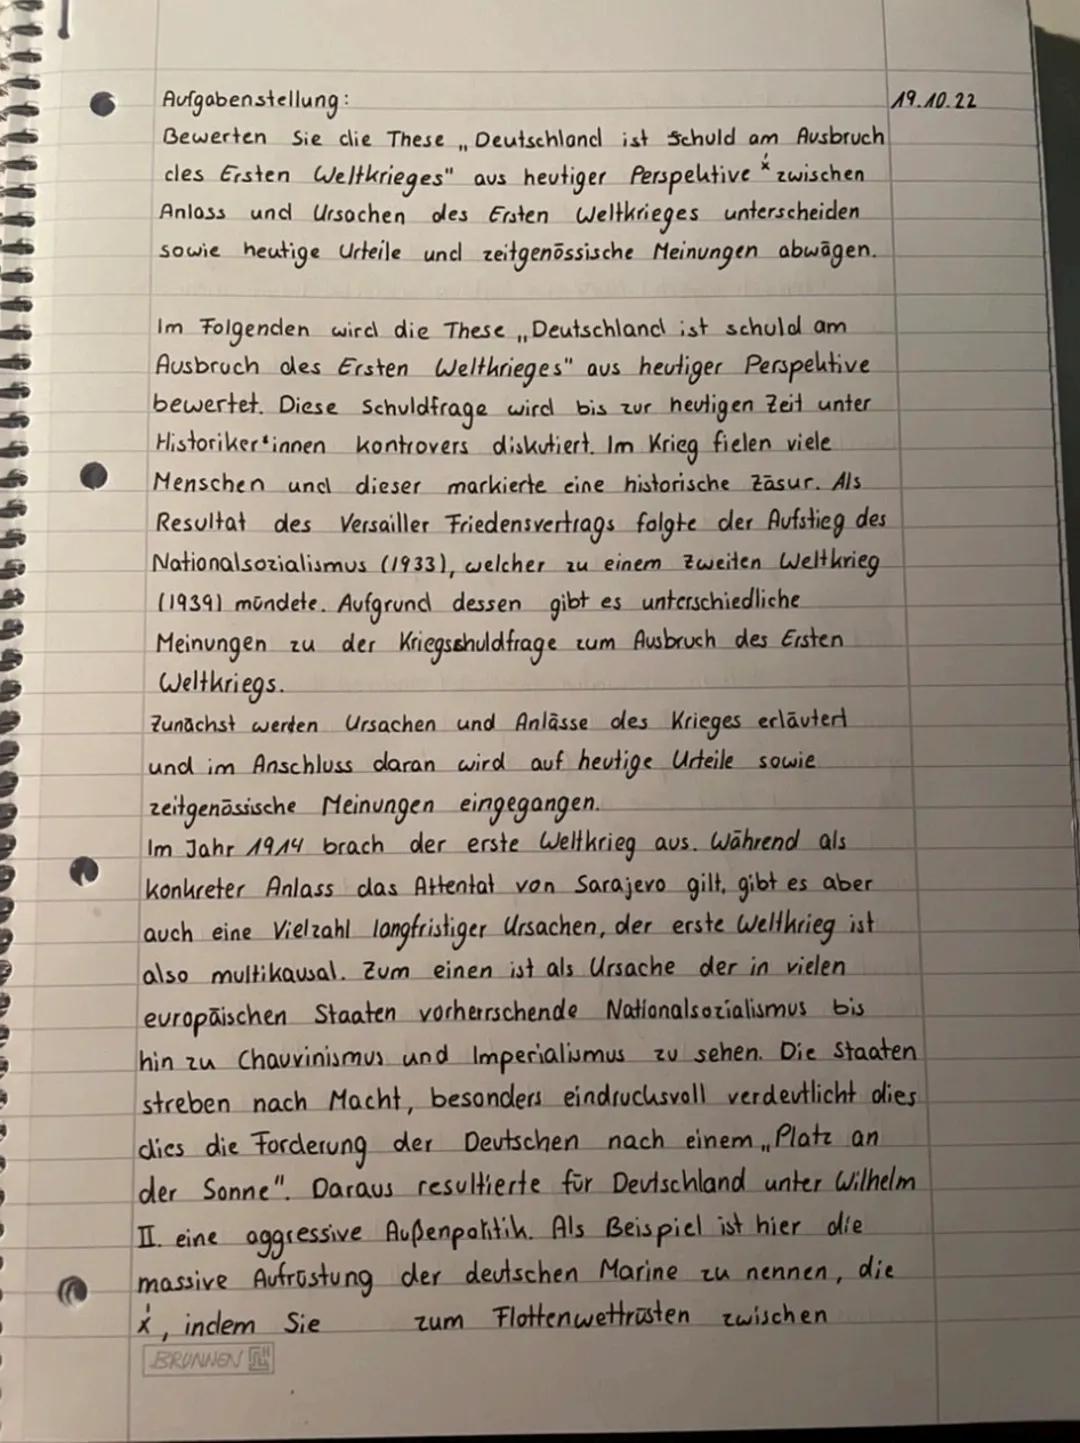 Aufgabenstellung:
19.10.22
Bewerten Sie die These „Deutschland ist Schuld am Ausbruch
des Ersten Weltkrieges" aus heutiger Perspektive x zwischen
Anlass und Ursachen des Ersten Weltkrieges unterscheiden
sowie heutige Urteile und zeitgenössische Meinungen abwägen.
Im Folgenden wird die These „Deutschland ist schuld am
Ausbruch des Ersten Weltkrieges" aus heutiger Perspektive
bewertet. Diese Schuldfrage wird bis zur heutigen Zeit unter
Historiker*innen kontrovers diskutiert. Im Krieg fielen viele
Menschen und dieser markierte eine historische Zäsur. Als
Resultat des Versailler Friedensvertrags folgte der Aufstieg des
Nationalsozialismus (1933), welcher zu einem zweiten Weltkrieg
(1939) mündete. Aufgrund dessen gibt es unterschiedliche
Meinungen zu der Kriegsshuldfrage zum Ausbruch des Ersten
Weltkriegs.
Zunächst werden Ursachen und Anlässe des Krieges erläutert
und im Anschluss daran wird auf heutige Urteile sowie
zeitgenössische Meinungen eingegangen.
Im Jahr 1914 brach der erste Weltkrieg aus. Während als
konkreter Anlass das Attentat von Sarajevo gilt, gibt es aber
auch eine Vielzahl langfristiger Ursachen, der erste Weltkrieg ist
also multikausal. Zum einen ist als Ursache der in vielen
europäischen Staaten vorherrschende Nationalsozialismus bis
hin zu Chauvinismus und Imperialismus zu sehen. Die Staaten
streben nach Macht, besonders eindrucksvoll verdeutlicht dies
dies die Forderung der Deutschen nach einem „Platz an
der Sonne". Daraus resultierte für Deutschland unter Wilhelm
II. eine aggressive Außenpolitik. Als Beispiel ist hier die
massive Aufrüstung der deutschen Marine zu nennen, die
x, indem Sie zum Flottenwettrüsten zwischen
BRUNNEN